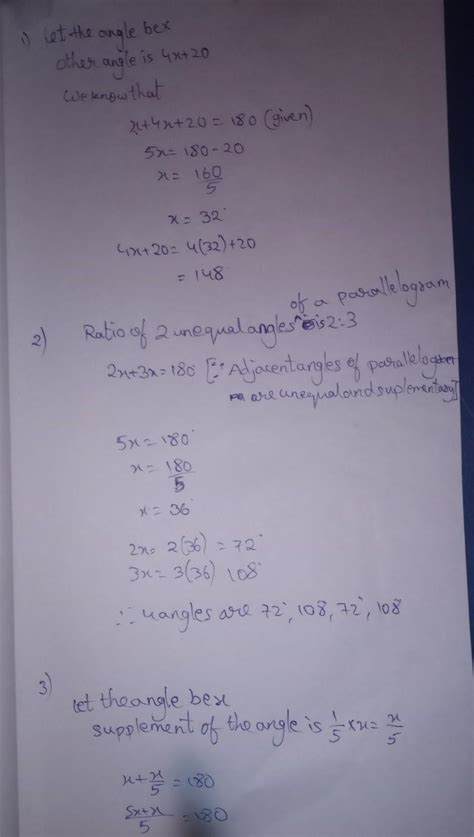 1) Let the angle bex
other angle is 4x+20
We know that
x+4x+20 = 180 (given)
5x = 180-20
x = 160/5
x = 32°
4x+20 = 4(32)+20
= 148
2) Ratio of 2 unequal angles ^ of a parallelogram is 2:3
2x+3x = 180 [∵ Adjacent angles of parallelogram
are unequal and suplementary]
5x = 180°
x = 180/5
x = 36°
2x = 2(36) = 72°
3x = 3(36) 108°
∴ 4 angles are 72°, 108, 72°, 108
3) Let the angle be x
supplement of the angle is 1/5 × x = x/5
x + x/5 = 180
5x+x/5 = 180